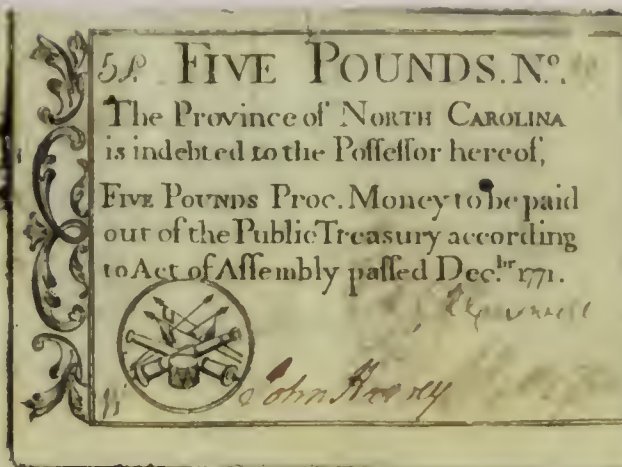 5£ FIVE POUNDS. Nº.
The Province of NORTH CAROLINA
is indebted to the Poſſeſſor hereof,
FIVE POUNDS Proc. Money to be paid
out of the Public Treasury according
to Act of Aſſembly paſſed Dec.br 1771.
John Harvey